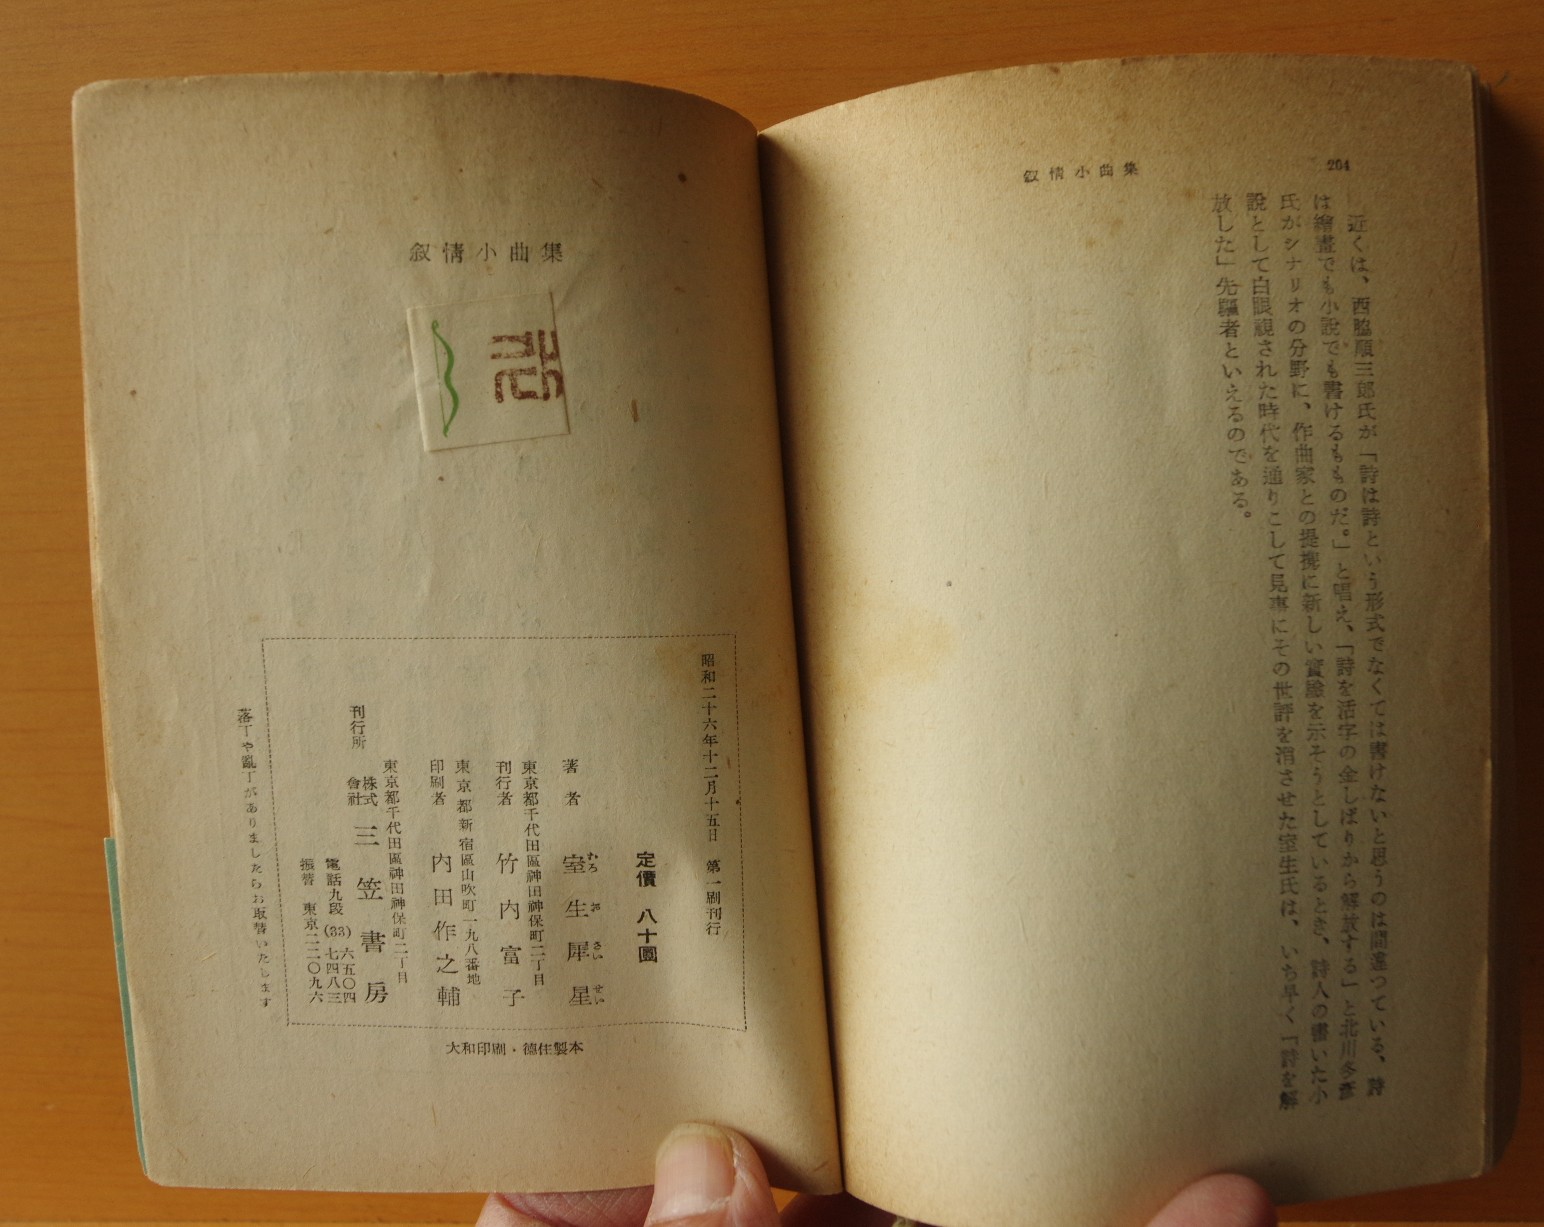 204
叙情小曲集
近くは、西脇順三郎氏が「詩は詩という形式でなくては書けないと思うのは間違つている、詩
は繪畫でも小説でも書けるものだ。」と唱え、「詩を活字の金しばりから解放する」と北川冬彦
氏がシナリオの分野に、作曲家との提携に新しい實驗を示そうとしているとき、詩人の書いた小
説として白眼視された時代を通りこして見事にその世評を消させた室生氏は、いち早く「詩を解
放した」先驅者といえるのである。
叙情小曲集
昭和二十六年十二月十五日 第一刷刊行
定價 八十圓
著者 室生犀星
むろ お さい せい
東京都千代田區神田神保町二丁目
刊行者 竹内富子
東京都新宿區山吹町一九八番地
印刷者 内田作之輔
東京都千代田區神田神保町二丁目
刊行所 株式會社 三笠書房
電話九段(33) 六五〇四 七四八三
振替 東京二二〇九六
落丁や亂丁がありましたらお取替いたします
大和印刷・德住製本